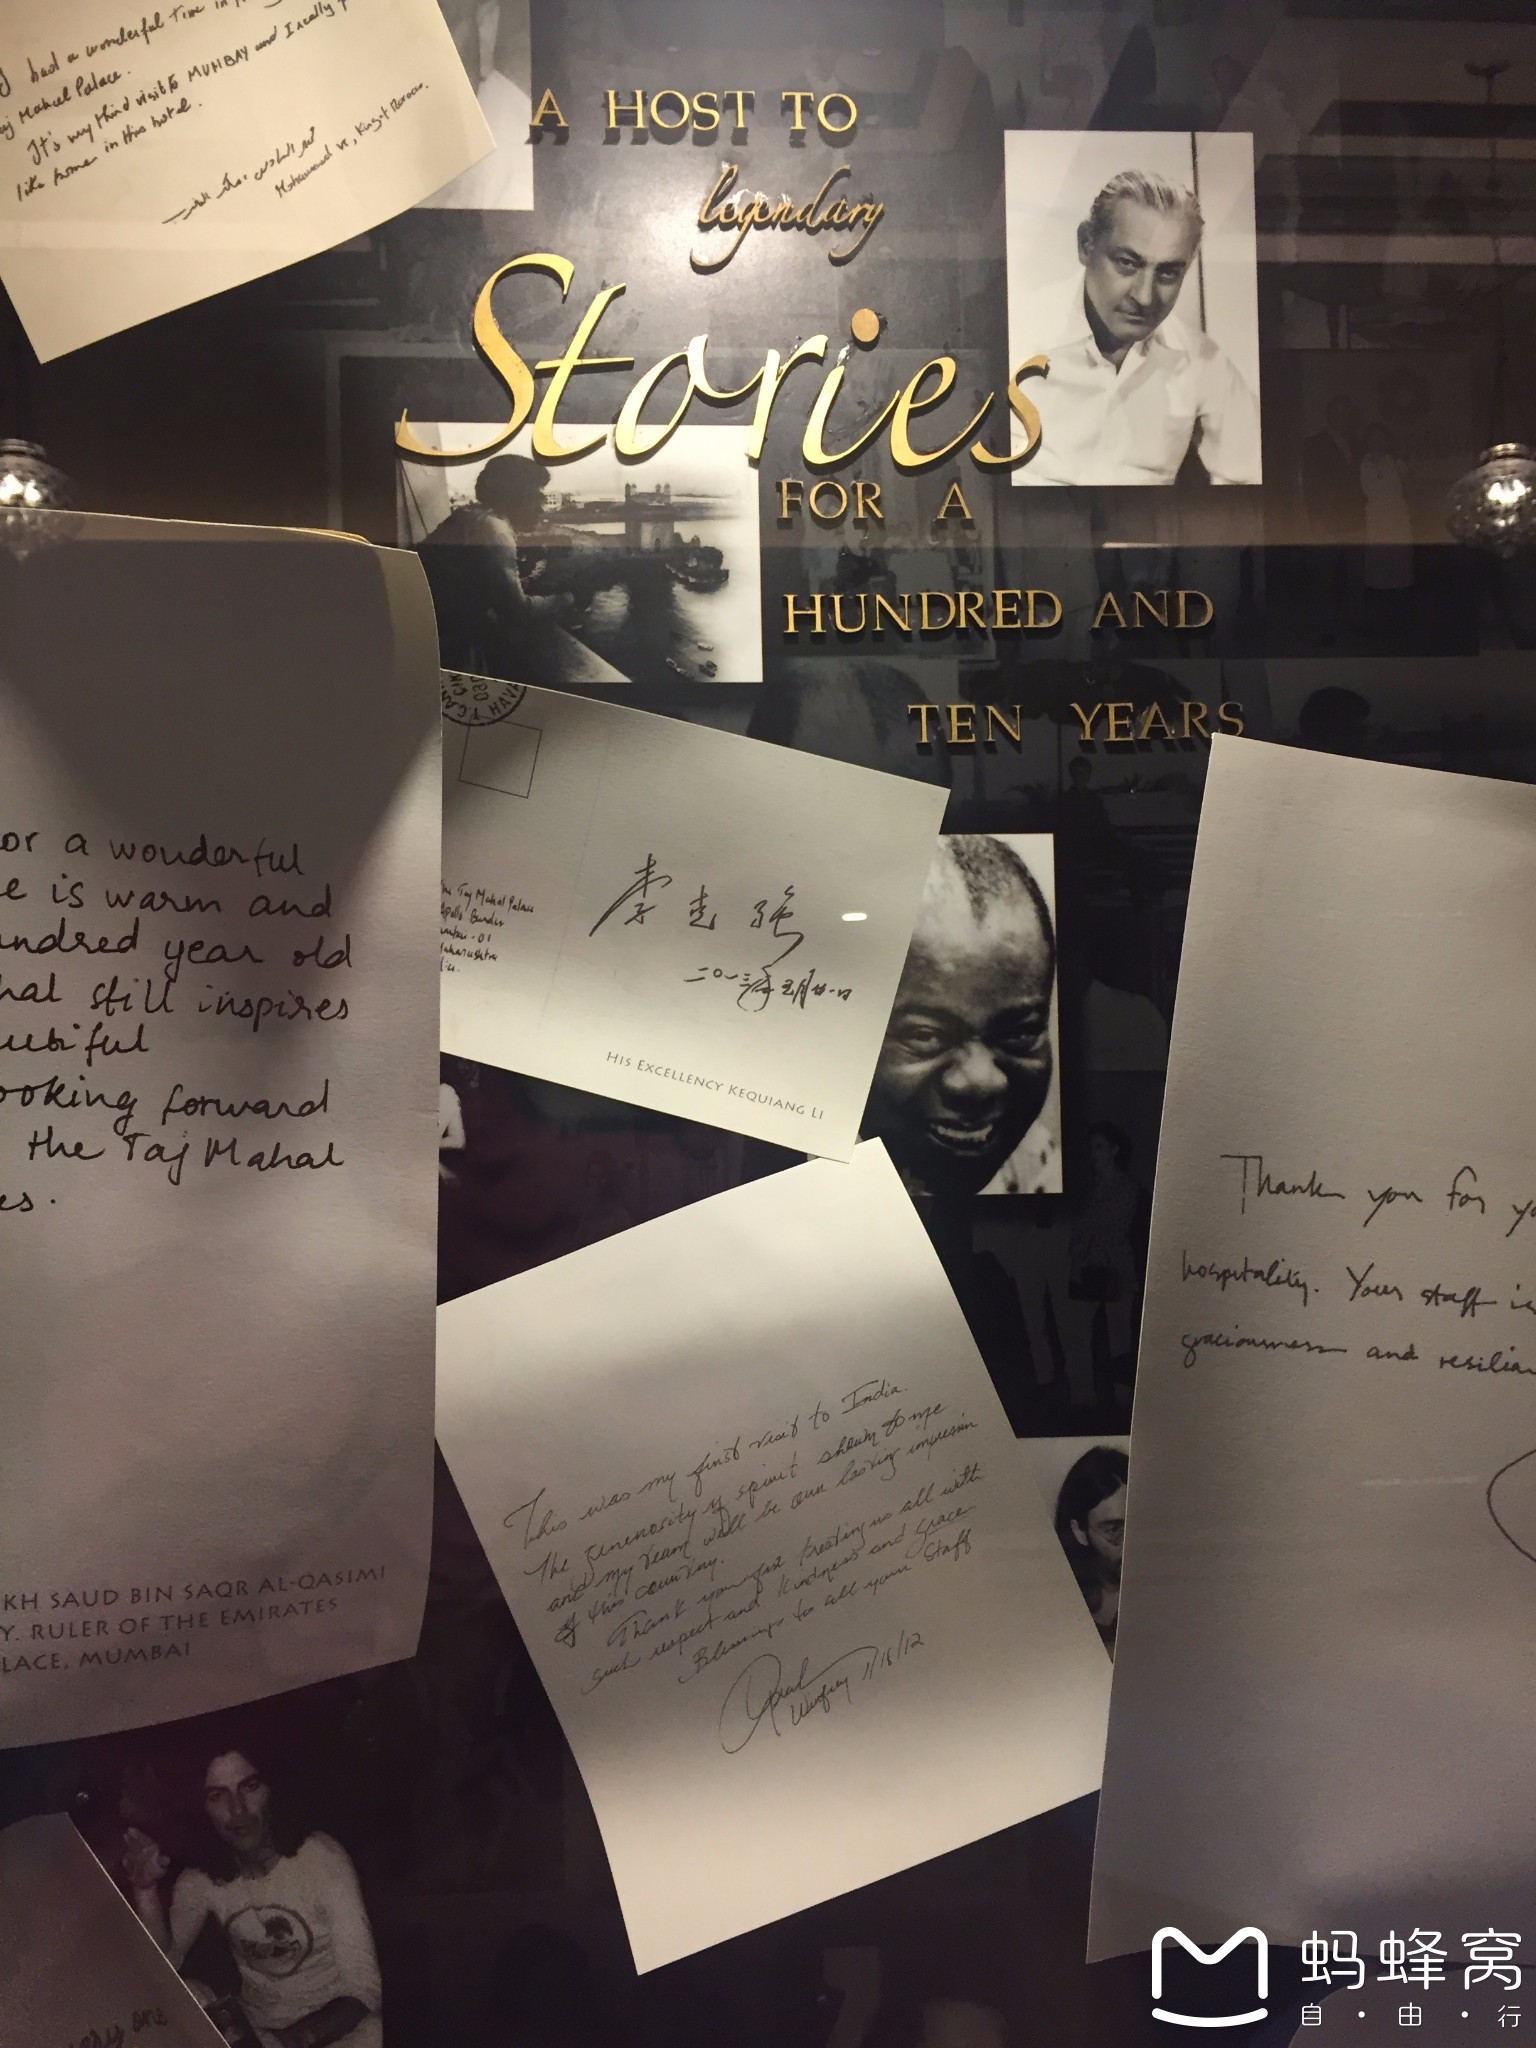 had a wonderful time in
Mahal Palace.
It's my third visit to MUMBAY and I really
like home in this hotel.
Mohammed VI, King of Morocco.
A HOST TO
legendary
Stories
FOR A
HUNDRED AND
TEN YEARS
or a wonderful
e is warm and
undred year old
hal still inspires
utiful
ooking forward
the Taj Mahal
es.
KH SAUD BIN SAQR AL-QASIMI
Y. RULER OF THE EMIRATES
LACE, MUMBAI
HAVA
The Taj Mahal Palace
Apollo Bunder
Mumbai-01
Maharashtra
李克强
二〇一三年五月廿一日
HIS EXCELLENCY KEQUIANG LI
This was my first visit to India.
The generosity of spirit shown to me
and my team will be our lasting impression
of this country.
Thank you for treating us all with
such respect and kindness and grace
Blessings to all your staff
Oprah
Winfrey 1/18/12
Thank you for yo
hospitality. Your staff is
graciousness and resilian
every one
蚂蜂窝
自·由·行